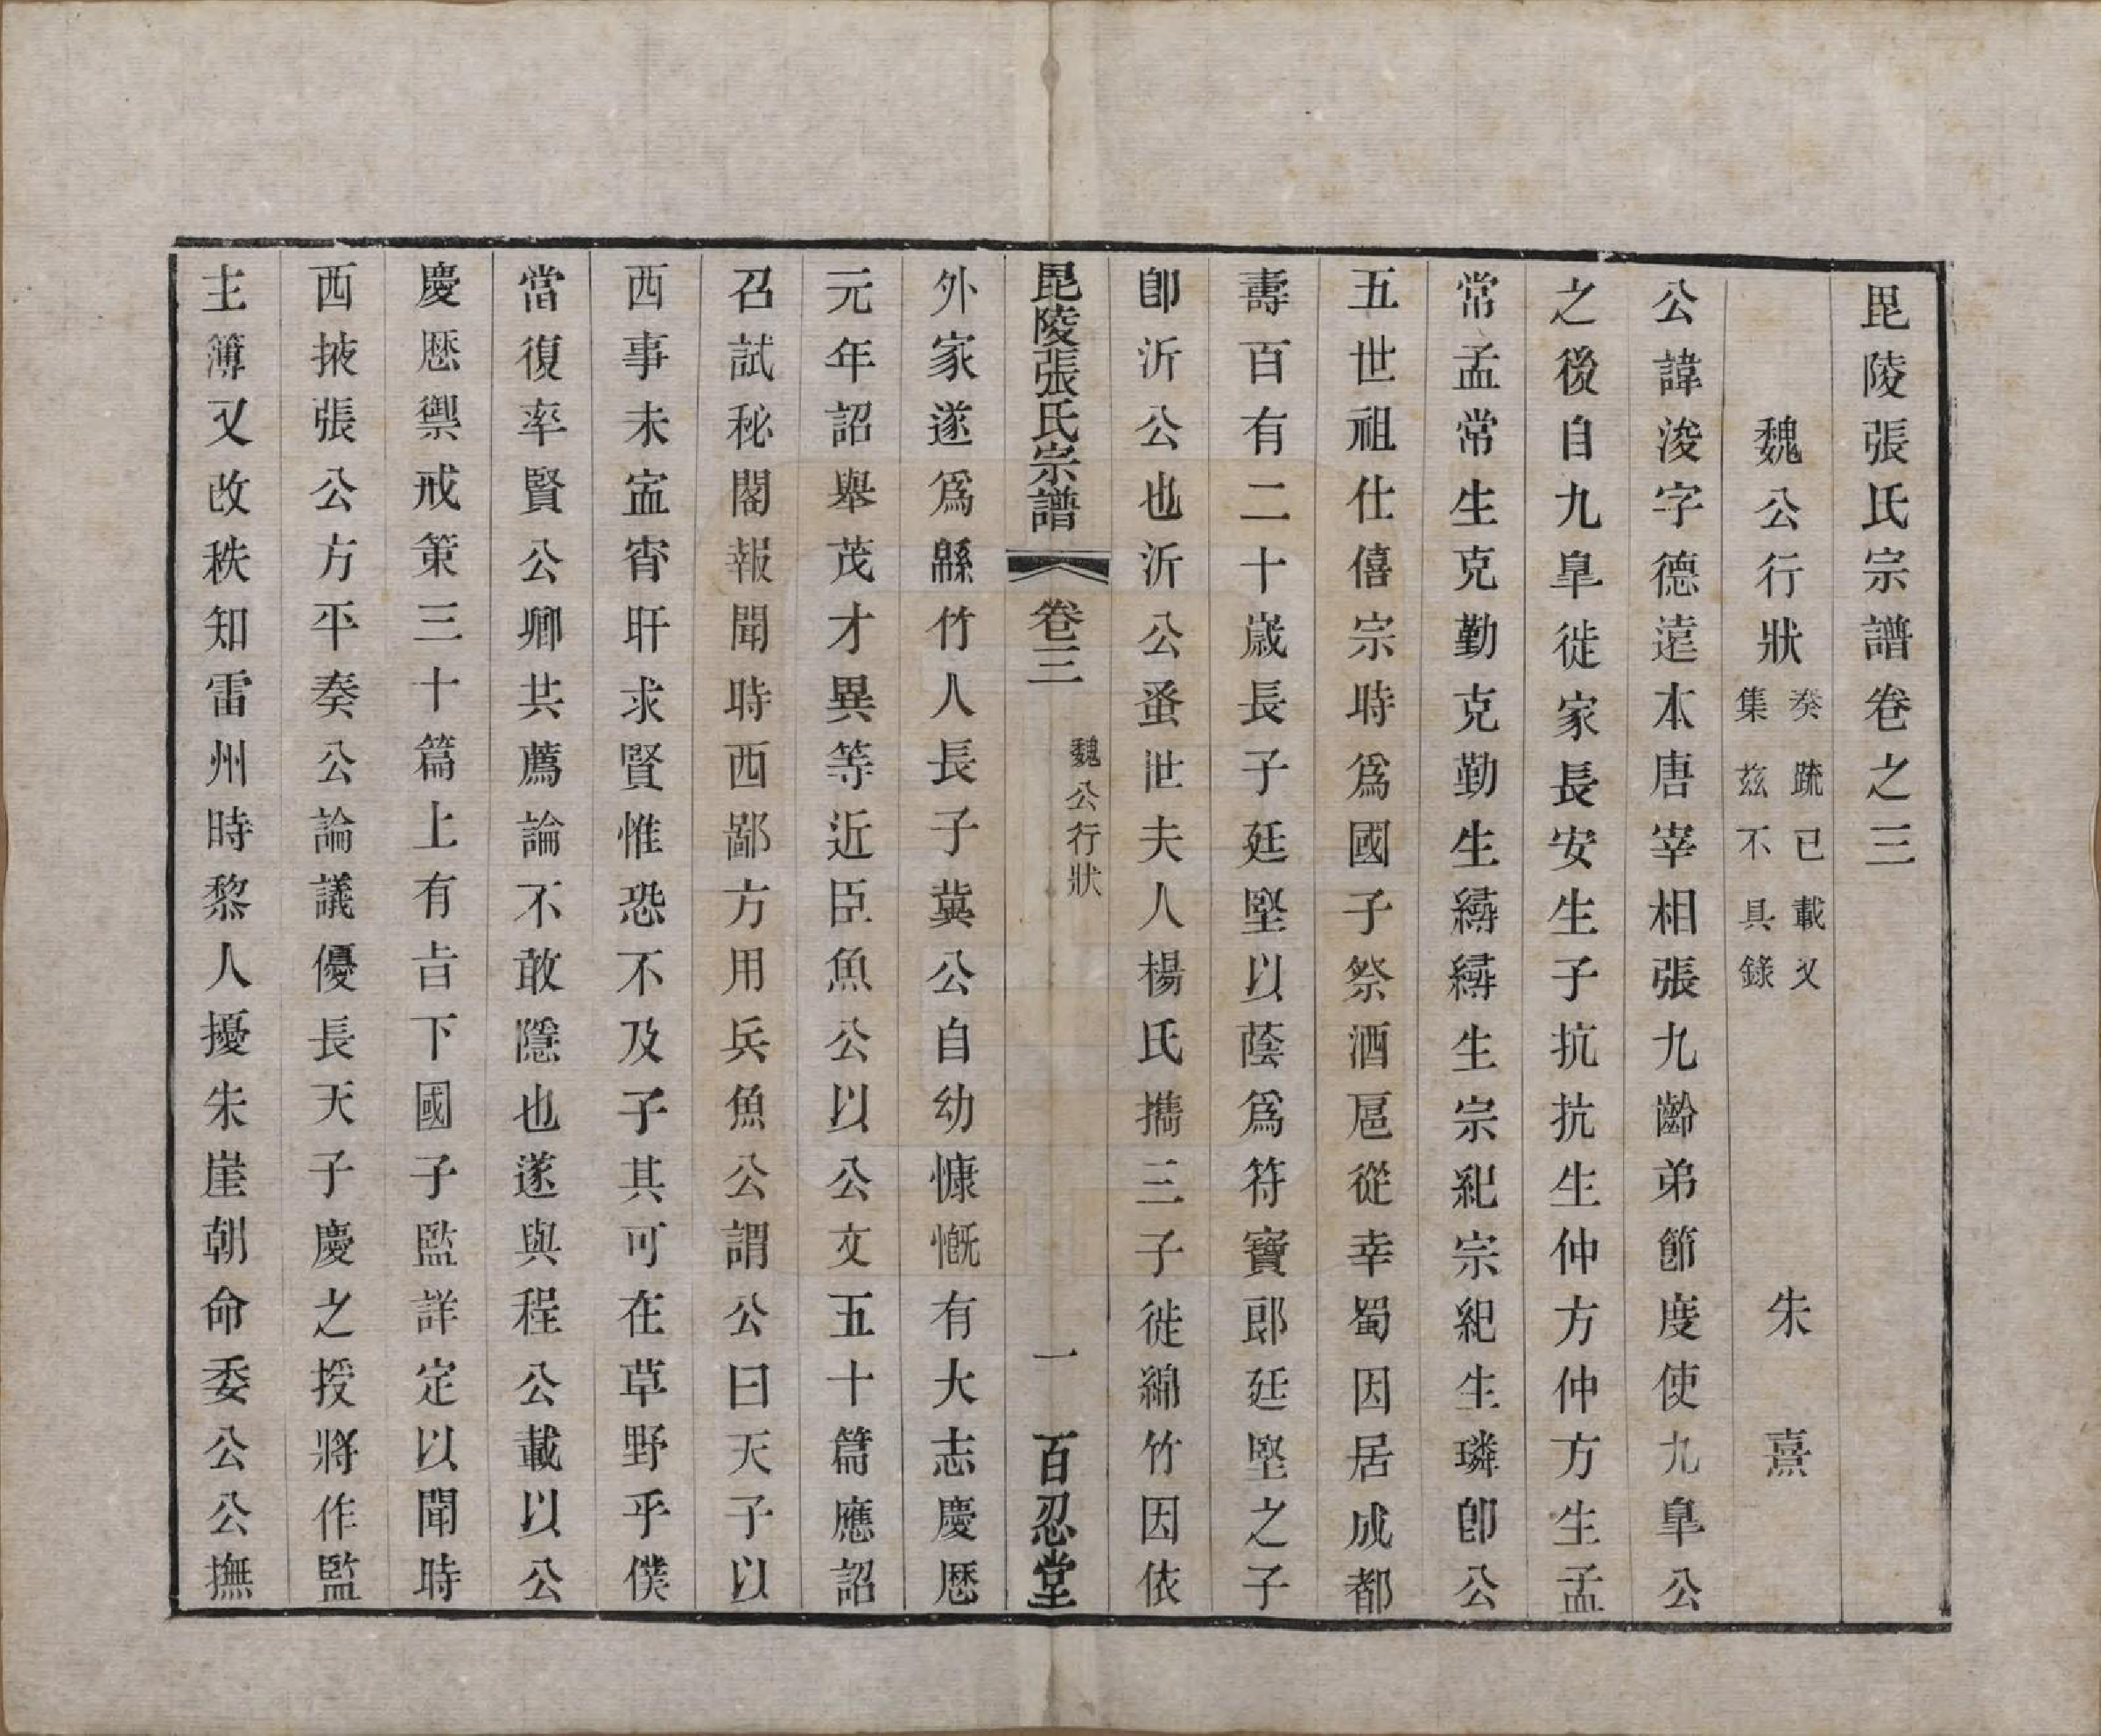 毘陵張氏宗譜卷之三
魏公行狀 奏疏已載文集茲不具錄 朱熹
公諱浚字德遠本唐宰相張九齡弟節度使九臯公
之後自九臯徙家長安生子抗抗生仲方仲方生孟
常孟常生克勤克勤生縟縟生宗紀宗紀生璘卽公
五世祖仕僖宗時爲國子祭酒扈從幸蜀因居成都
壽百有二十歲長子廷堅以蔭爲符寶郎廷堅之子
卽沂公也沂公蚤世夫人楊氏攜三子徙綿竹因依
毘陵張氏宗譜 卷三 魏公行狀 一 百忍堂
外家遂爲緜竹人長子冀公自幼慷慨有大志慶歷
元年詔舉茂才異等近臣魚公以公文五十篇應詔
召試秘閣報聞時西鄙方用兵魚公謂公曰天子以
西事未寍宵旰求賢惟恐不及子其可在草野乎僕
當復率賢公卿共薦論不敢隱也遂與程公載以公
慶歷禦戒策三十篇上有旨下國子監詳定以聞時
西掖張公方平奏公論議優長天子慶之授將作監
主簿又改秩知雷州時黎人擾朱崖朝命委公公撫